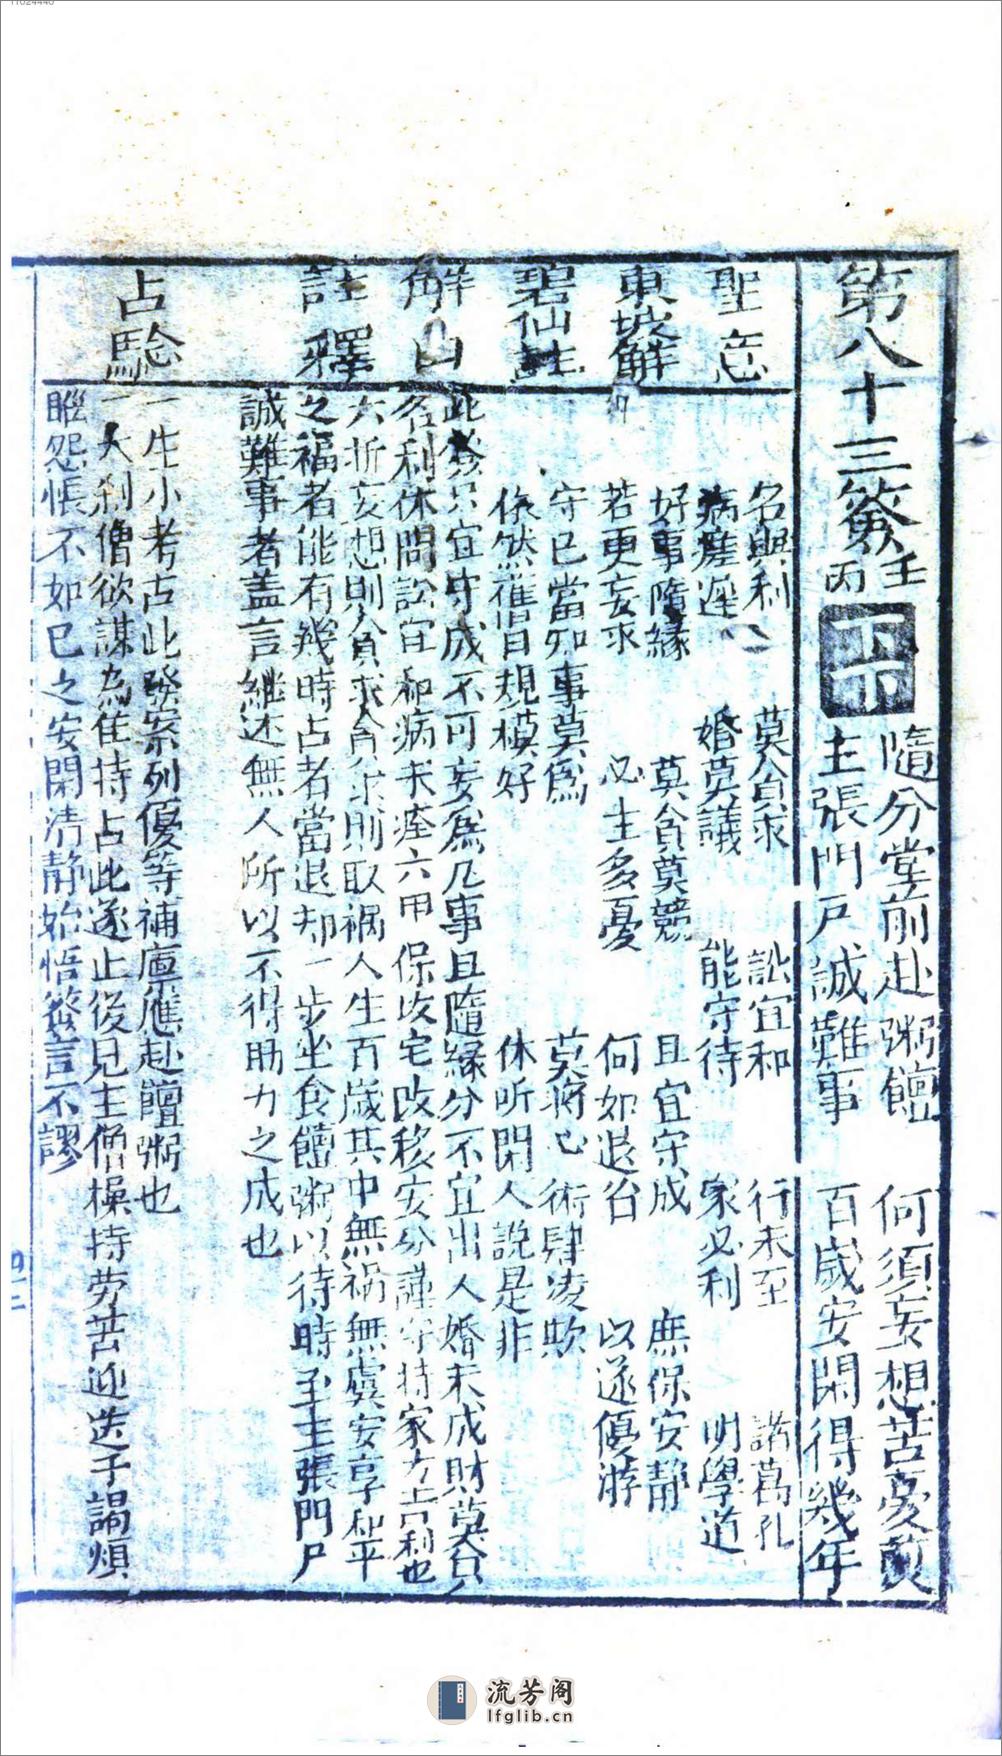 11024440
第八十三籤 壬丙 下下
隨分堂前赴粥饘 何須妄想苦憂煎
主張門戶誠難事 百歲安閑得幾年
聖意
名與利 莫貪求 訟宜和 行未至 諸葛孔
病瘥遲 婚莫議 能守待 家必利 明學道
東坡解
好事隨緣 莫貪莫競 且宜守成 庶保安靜
若更妄求 必生多憂 何如退治 以遂優游
碧仙註
守已當知事莫為 莫將心術肆凌欺
依然舊日規模好 休听閑人說是非
解曰
此籤只宜守成不可妄為凡事且隨緣分不宜出入婚未成財莫貪
名利休問訟宜和病未痊六甲保改宅改移安分謹守持家方吉利也
註釋
六祈妄想則貪求貪求則取禍人生百歲其中無禍無虞安享和平
之福者能有幾時占者當退却一步坐食饘粥以待時至主張門戶
誠難事者盖言継述無人所以不得助力之成也
占驗
一生小考占此發案列優等補廪應赴饘粥也
一大刹僧欲謀為住持占此遂止後見主僧操持劳苦迎送予謁煩
睚怨悵不如已之安閑清静始悟籤言不謬
四二
流芳阁
lfglib.cn